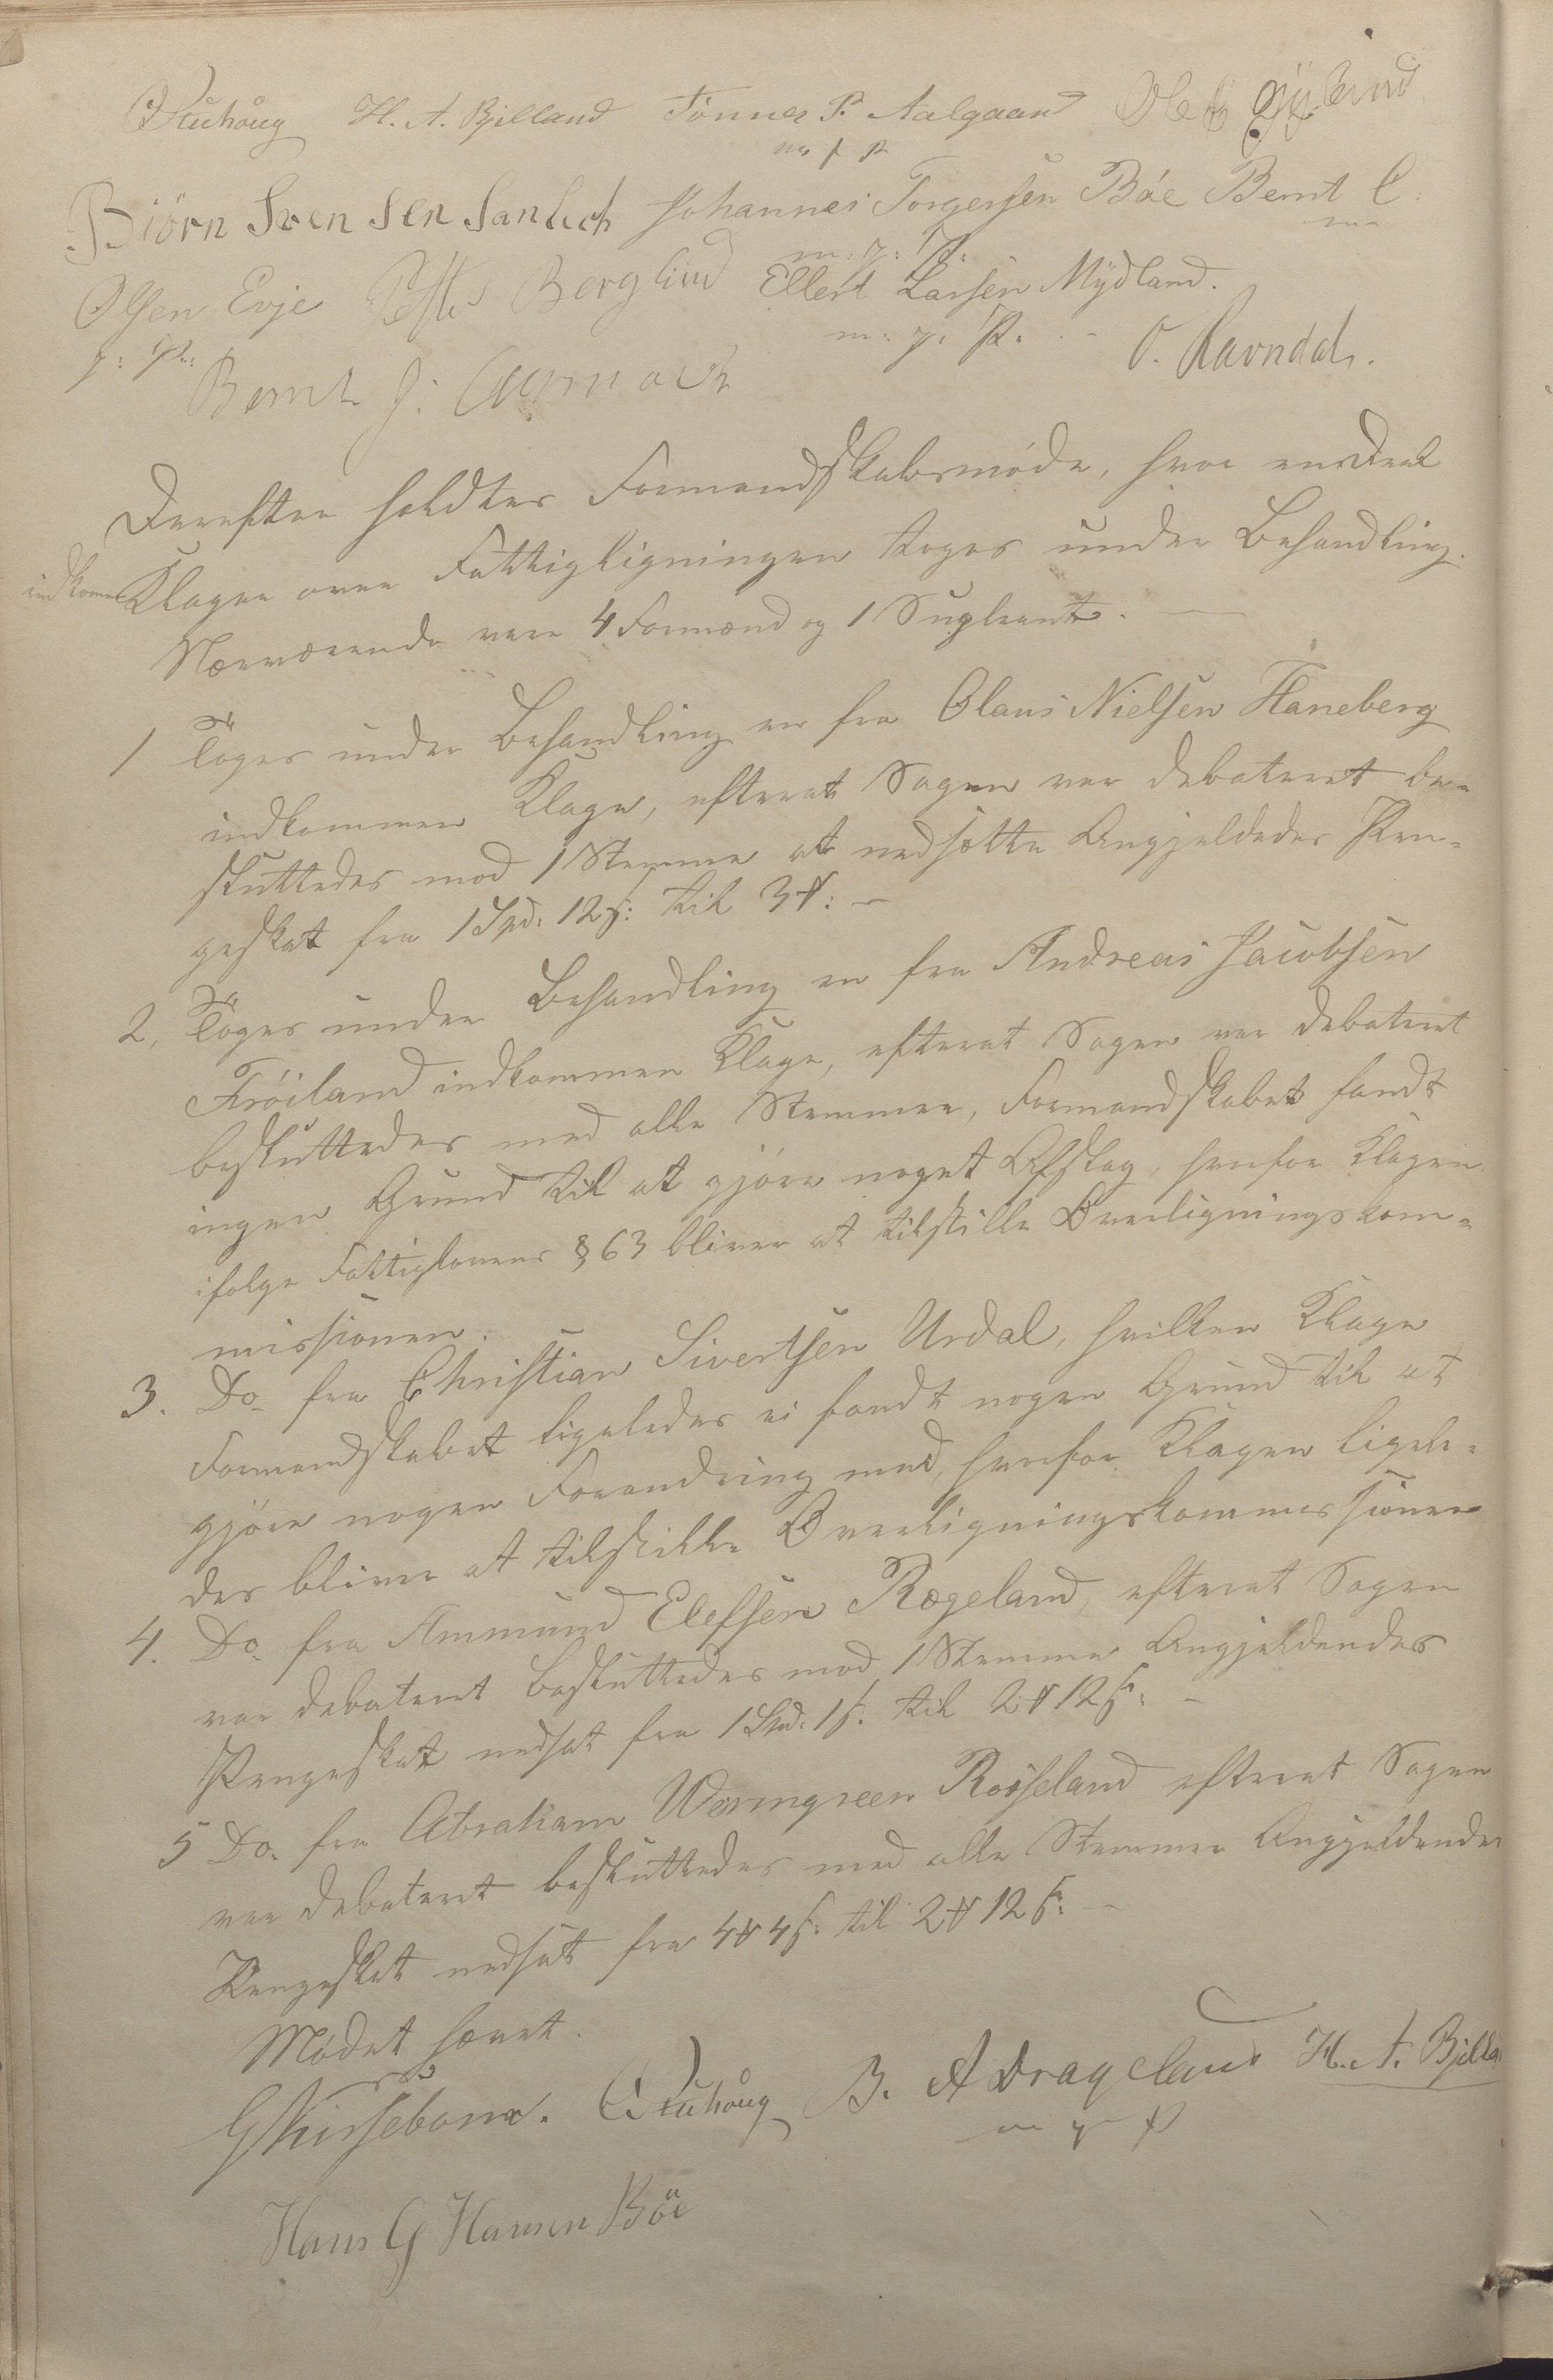 H. A. Bjelland Tönnes P. Aalgaard Ole
m p p
Biörn Svensen Sanlich Johannes Torgersen Böe Bernt C:
m: p: P: m
Olsen Evje Petter Berglind Ellert Larsen Mydland.
p: P: m: p: P. O. Ravndal.
Bernt J:
Derefter holdtes Formandskabsmöde, hvor endeel
indkomne Klager over Fattigligningen toges under Behandling.
Nærværende vare 4 Formænd og 1 Supleant. —
1 Toges under Behandling en fra Olaus Nielsen Haneberg
indkommen Klage, efterat Sagen var debateret be-
sluttedes mod 1 Stemme at nedsætte Angjeldedes Pen-
geskat fra 1 Spd. 12 s: til 3 #: —
2, Toges under Behandling en fra Andreas Jacobsen
Fröiland indkommen Klage, efterat Sagen var debateret
besluttedes med alle Stemmer, Formandskabet fandt
ingen Grund til at gjöre noget Afslag, hvorfor Klagen
ifölge Fattiglovens § 63 bliver at tilstille Overligningskom-
missionen.
3. Do. fra Christian Sivertsen Urdal, hvilken Klage
Formandskabet ligeledes ei fandt nogen Grund til at
gjöre nogen Forandring med, hvorfor Klagen ligele-
des bliver at tilstille Overligningskommissionen
4. Do. fra Ammund Elefsen Rægeland, efterat Sagen
var debateret besluttedes mod 1 Stemme Angjeldendes
Pengeskat nedsat fra 1 Spd. 1 s. til 2 # 12 s: —
5 Do. fra Abraham Wermgreen Rosseland efterat Sagen
var debateret besluttedes med alle Stemmer Angjeldendes
Pengeskat nedsat fra 4 # 4 s. til 2 # 12 s. —
Mödet hævet.
G Kirsebom. B. A Drageland H. A. Bjella
m p p
Hans G Hansen Böe